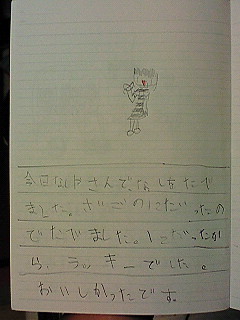 今日なしやさんで、なしをたべ
ました。さいごの1こだったの
でたべました。1こだったか
ら、ラッキーでした。
おいしかったです。